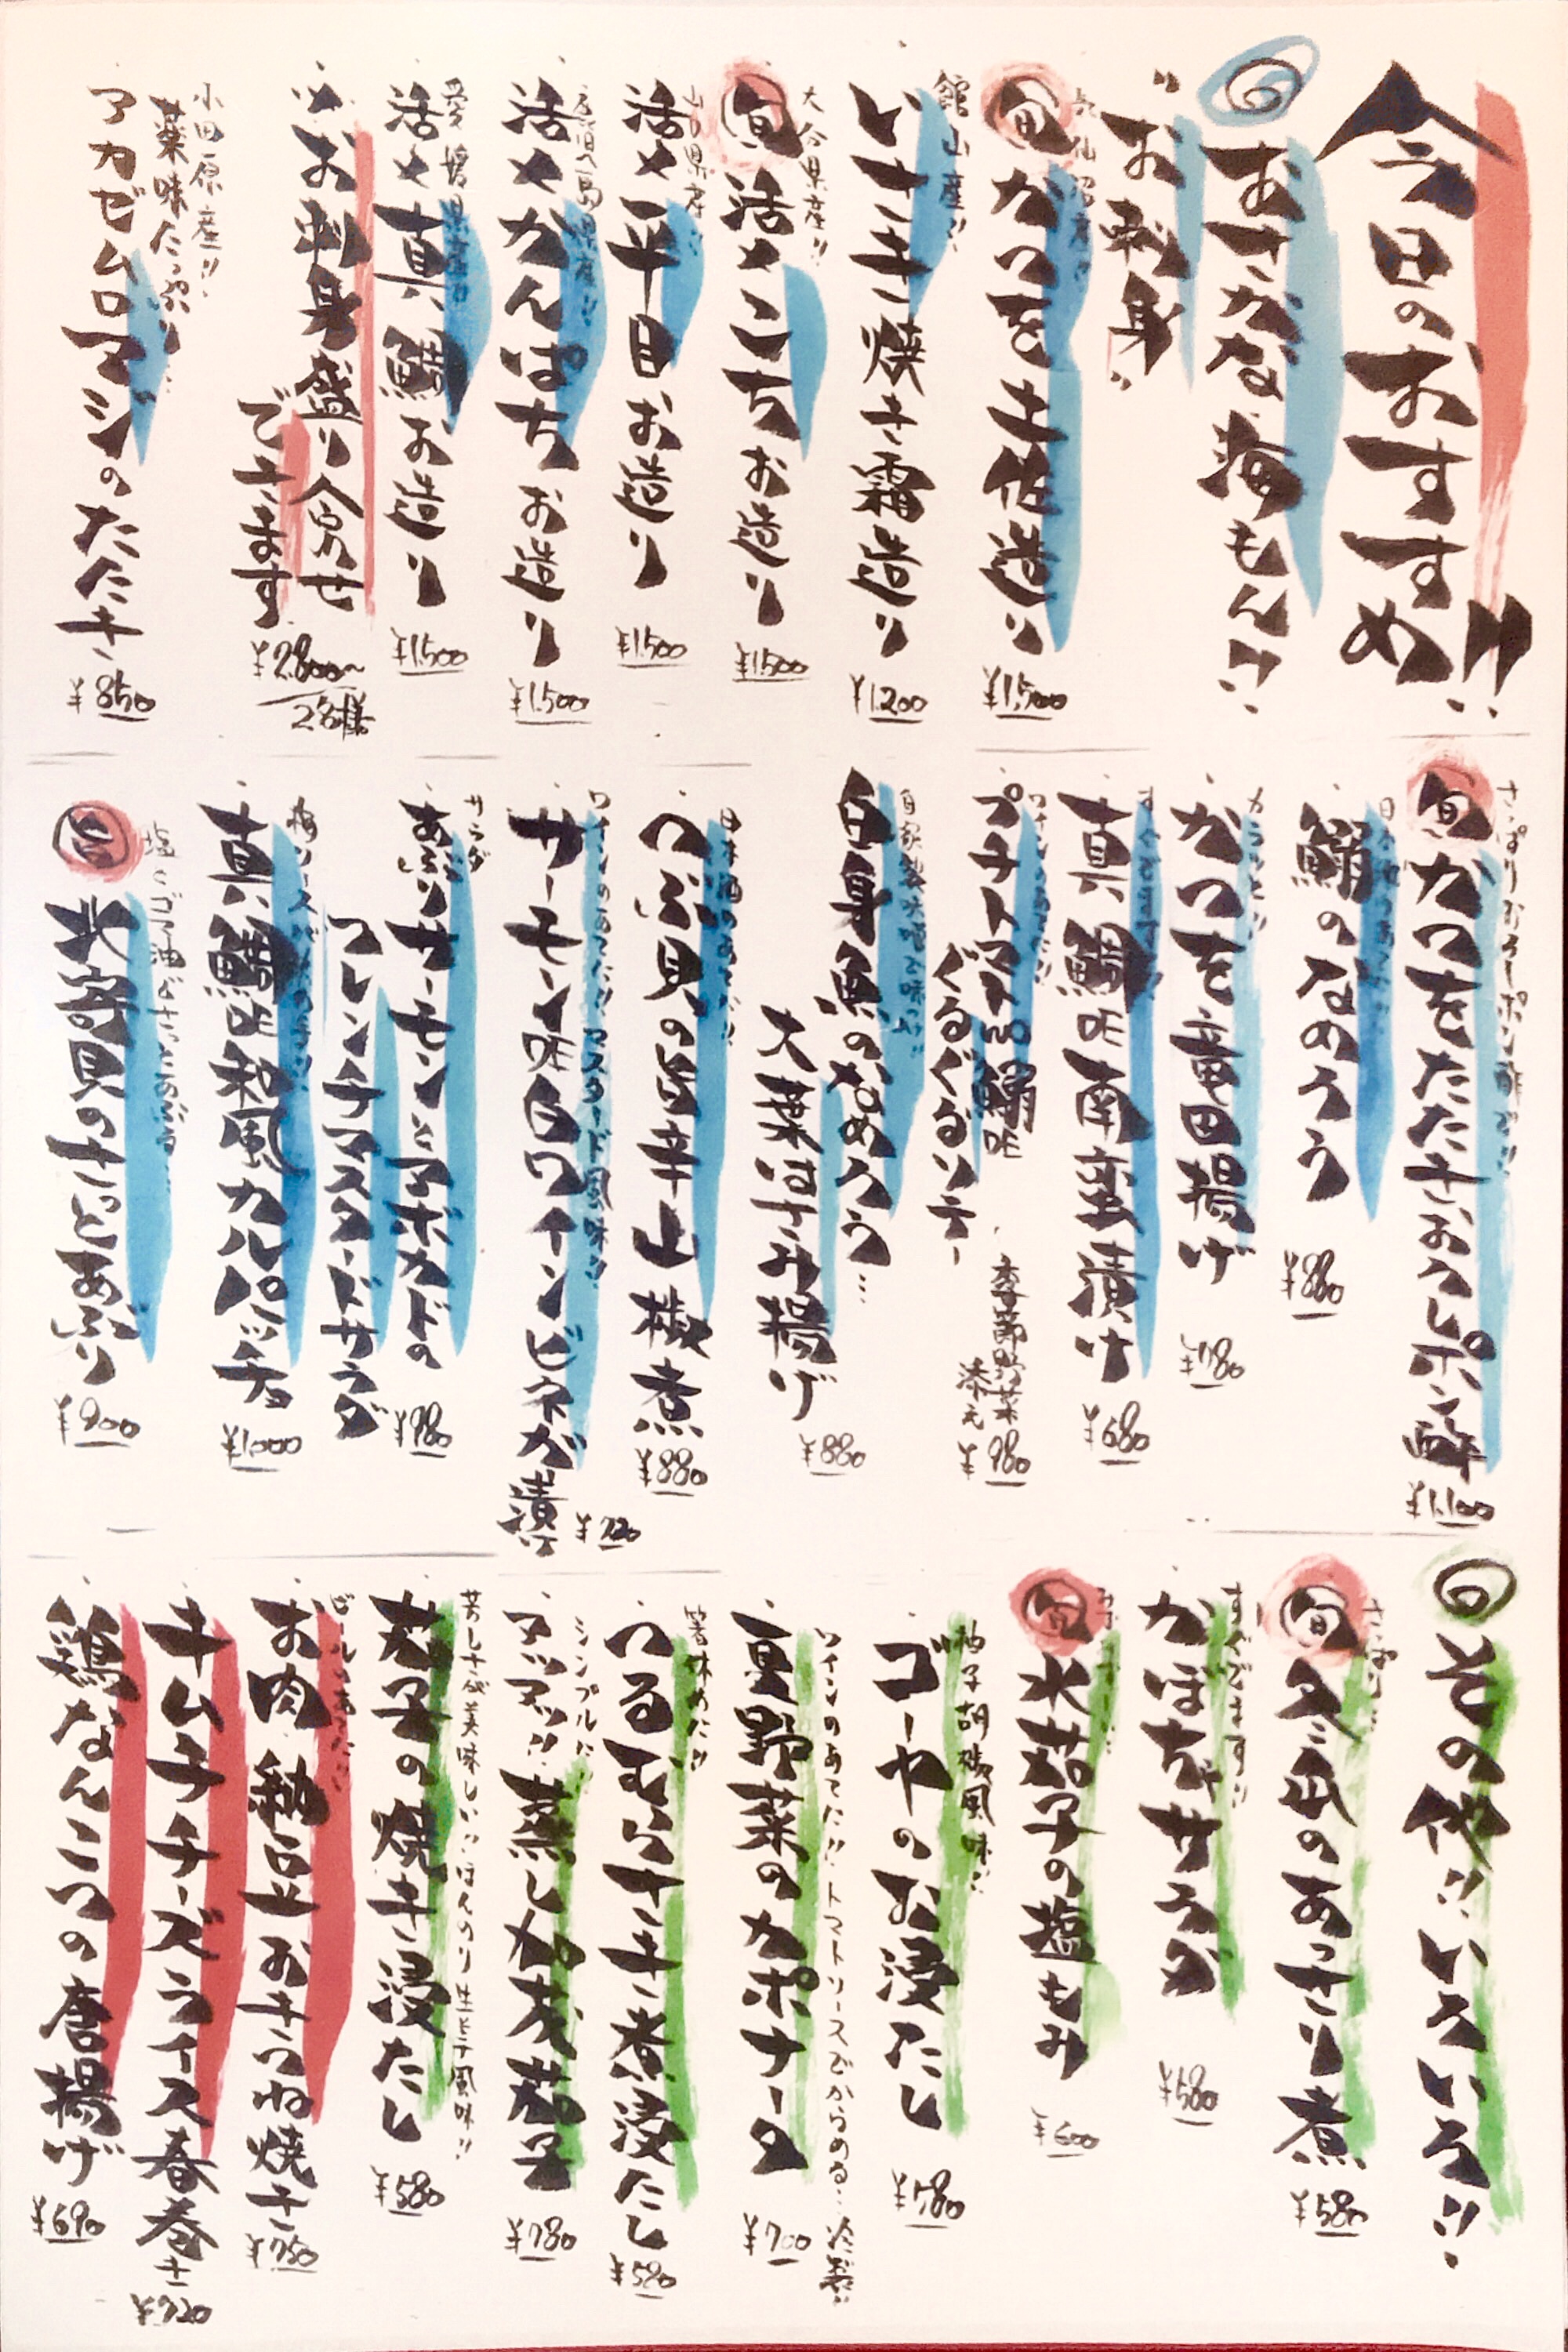 今日のおすすめ!!
おさかな海もん!!
"お刺身"
気仙沼産!!
旬 かつを土佐造り ¥1,500
館山産!!
いさき焼き霜造り ¥1,200
大分県産!!
旬 活〆こちお造り ¥1,500
山口県産!!
活〆平目お造り ¥1,500
活〆かんぱちお造り ¥1,500
愛媛県産!!
活〆真鯛お造り ¥1,500
お刺身盛り合わせ
できます ¥2,800〜 2名様
小田原産!!
薬味たっぷり…
アカゼムロアジのたたき ¥850
さっぱりおろしポン酢で!!
旬 かつをたたきおろしポン酢 ¥1,100
鯵のなめろう ¥880
カラッと!!
かつを竜田揚げ ¥780
すぐでます!!
真鯛南蛮漬け ¥680
プチトマト
ぐるぐるソテー
季節野菜
添え ¥980
白身魚のなめろう…
大葉はさみ揚げ ¥880
日本酒のあてに!!
つぶ貝の旨辛山椒煮 ¥880
ワインのあてに!! マスタード風味!!
サーモン 白ワインビネガー漬け ¥720
サラダ
あぶりサーモンとアボカドの
フレンチマスタードサラダ ¥980
真鯛 和風カルパッチョ ¥1,000
塩とゴマ油でさっとあぶる…
北寄貝のさっとあぶり ¥900
その他!! いろいろ!!
さっぱり…
旬 冬瓜のあっさり煮 ¥580
すぐでます!!
かぼちゃサラダ ¥580
旬 水茄子の塩もみ ¥600
柚子胡椒風味!!
ゴーヤのお浸たし ¥580
ワインのあてに!! トマトソースでからめる… 冷製!!
夏野菜のカポナータ ¥700
箸休めに!!
つるむらさき煮浸たし ¥580
シンプルに!!
アツアツ!! 蒸し加茂茄子 ¥780
蒸し茄子美味しい!! ほんのり生姜風味!!
茄子の焼き浸たし ¥580
ビールのあてに!!
お肉納豆おきつね焼き ¥750
キムチチーズライス春巻き ¥720
鶏なんこつの唐揚げ ¥690